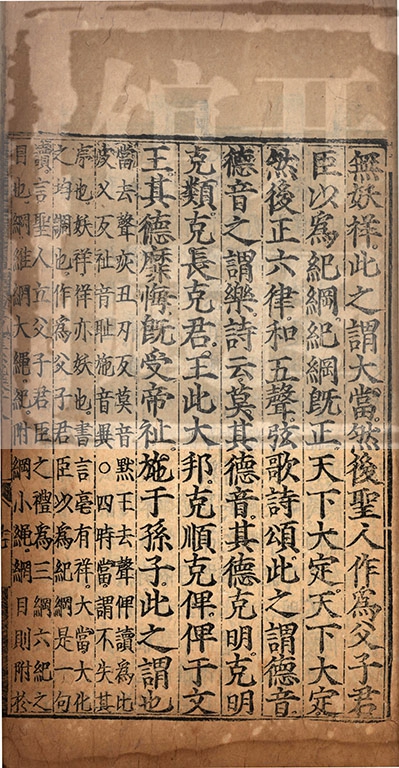 無妖祥。此之謂大當。然後聖人作。爲父子君
臣。以爲紀綱。紀綱既正。天下大定。天下大定
然後正六律。和五聲。弦歌詩頌。此之謂德音
德音之謂樂。詩云。莫其德音。其德克明。克明
克類。克長克君。王此大邦。克順克俾。俾于文
王。其德靡悔。既受帝祉。施于孫子。此之謂也
當去聲疢丑刃反莫音默王去聲俾讀爲比
反祉音恥施音異○四時當謂不失其
序也妖祥祥亦妖也書言亳有祥大當大化
之均調也作爲父子君臣以爲紀綱是一句
讀言聖人立父子君臣之禮爲三綱六紀之
目也綱維綱大繩紀附綱小繩網目則附於